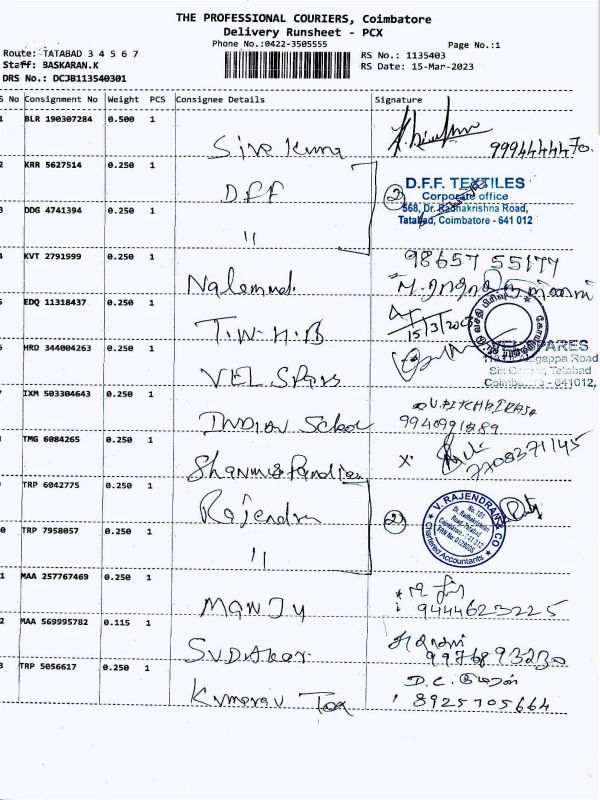 THE PROFESSIONAL COURIERS, Coimbatore
Delivery Runsheet - PCX
Phone No.:0422-3505555
Page No.:1
Route: TATABAD 3 4 5 6 7
Staff: BASKARAN.K
DRS No.: DCJB113540301
RS No.: 1135403
RS Date: 15-Mar-2023
S No Consignment No Weight PCS Consignee Details Signature
1 BLR 190307284 0.500 1
Siva Kumar
9994444470.
2 KRR 5627514 0.250 1
DFF
2
D.F.F. TEXTILES
Corporate office
568, Dr. Radhakrishna Road,
Tatabad, Coimbatore - 641 012
3 DDG 4741394 0.250 1
11
4 KVT 2791999 0.250 1
98657 55177
5 EDQ 11318437 0.250 1
T.W.H.B
15/3/2023
6 HRD 344004263 0.250 1
VEL SPARES
Road
Tatabad
Coimbatore - 641012,
7 IXM 503304643 0.250 1
INDIAN School
9940991889
8 TMG 6084265 0.250 1
Shanmuga Pandian
X
7708371145
9 TRP 6042775 0.250 1
Rajendran
2
V. RAJENDRAN & CO
Chartered Accountants
No. 101
Dr. Radhakrishnan
Road, Tatabad
Coimbatore - 641 012
10 TRP 7958057 0.250 1
11
11 MAA 257767469 0.250 1
MANJU
9444623225
12 MAA 569995782 0.115 1
SUDAkar
13 TRP 5056617 0.250 1
Kumaran Tex
D.C. குமரன்
8925705664